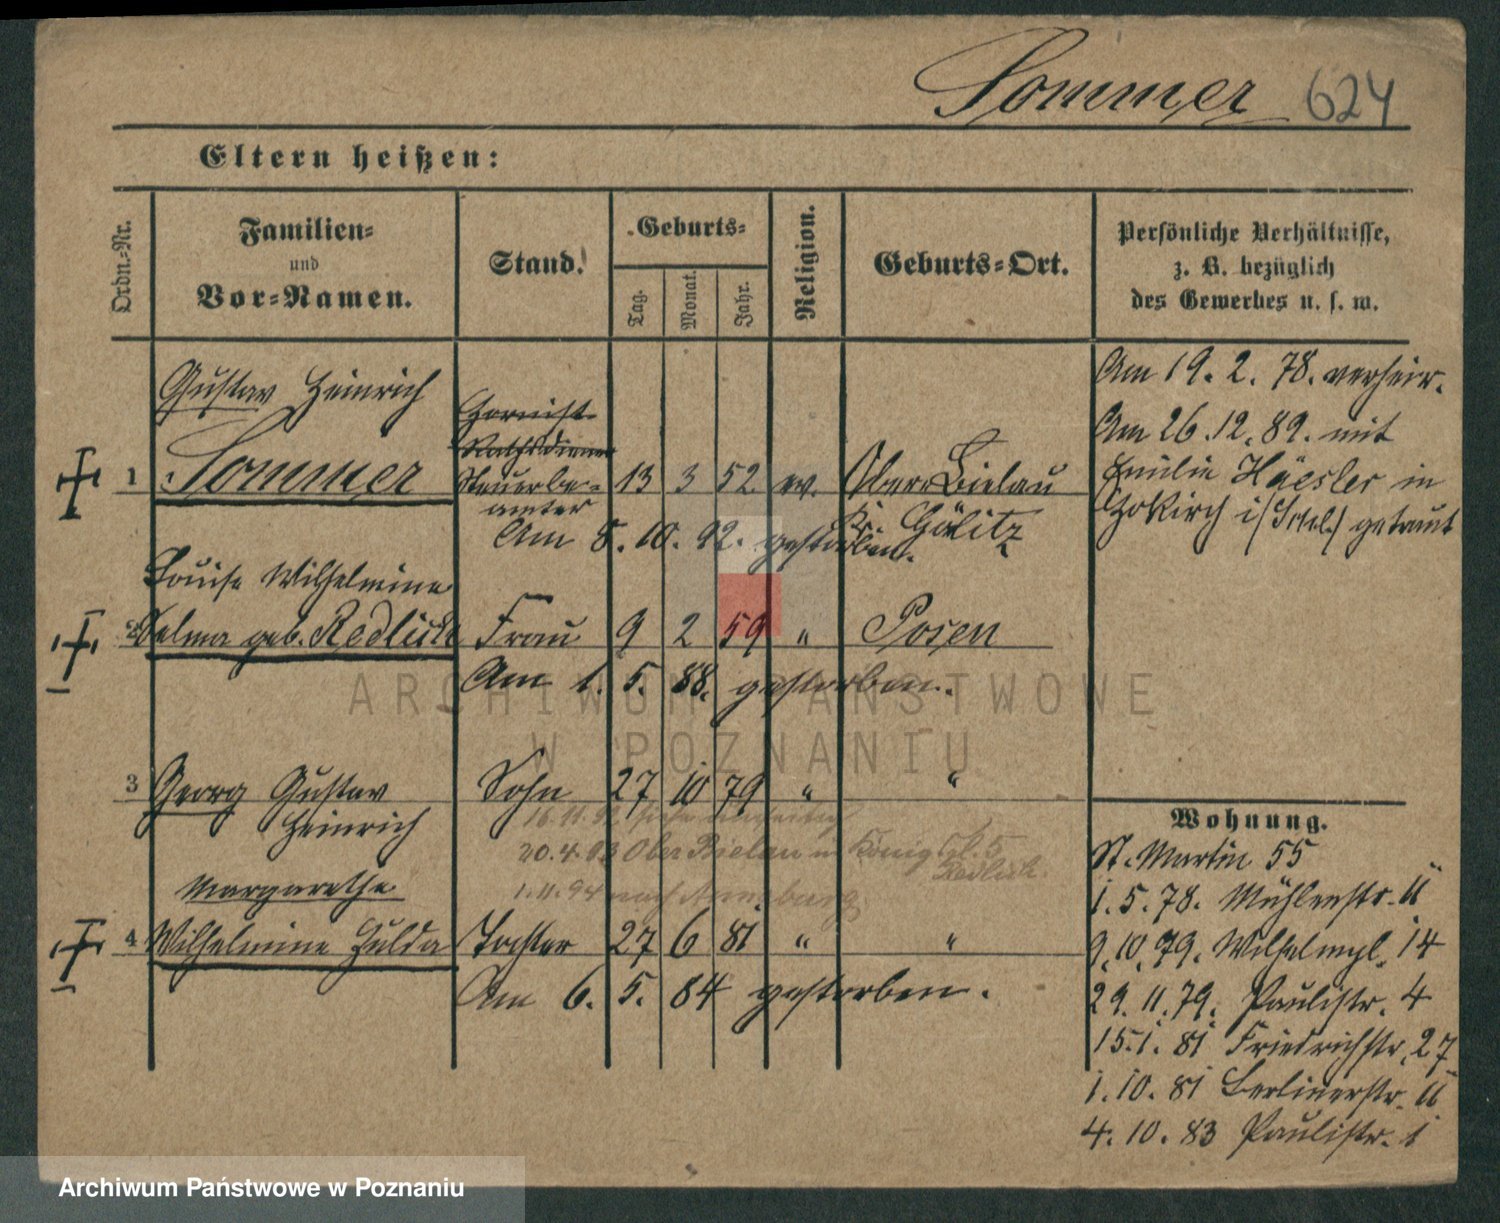 Sommer 624
Eltern heißen:
Ordn.-Nr.
Familien-
und
Vor-Namen.
Stand.
Geburts-
Tag.
Monat.
Jahr.
Religion.
Geburts-Ort.
Persönliche Verhältnisse,
z. B. bezüglich
des Gewerbes u. s. w.
Gustav Heinrich
Hornist
Rathsdiener
1 Sommer Steuerbe- 13 3 52 ev. Ober Bielau
amter
Kr. Görlitz
Am 8. 10. 92. gestorben.
Louise Wilhelmine
2 Selma geb. Redlich Frau 9 2 59 " Posen
Am 1. 5. 88. gestorben.
3 Georg Gustav Sohn 27 10 79 " "
Heinrich
20.4.93 Ober Bielau
1.11.94 nach
Margarethe
4 Wilhelmine Hulda Tochter 27 6 81 " "
Am 6. 5. 84 gestorben.
Am 19. 2. 78. verheir.
Am 26. 12. 89. mit
Emilie Häesler in
getraut
Wohnung.
St. Martin 55
1. 5. 78. Mühlenstr. 11
9. 10. 79. Wilhelmpl. 14
29. 11. 79. Paulistr. 4
15. 1. 81 Friedrichstr. 27
1. 10. 81 Berlinerstr. 11
4. 10. 83 Paulistr. 1
ARCHIWUM PAŃSTWOWE
W POZNANIU
Archiwum Państwowe w Poznaniu